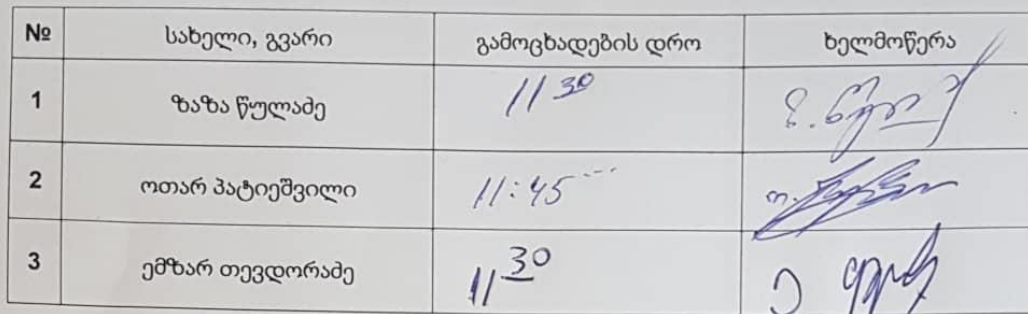 № სახელი, გვარი გამოცხადების დრო ხელმოწერა
1 ზაზა წულაძე 11 30
2 ოთარ პატიეშვილი 11:45
3 ემზარ თევდორაძე 11 30